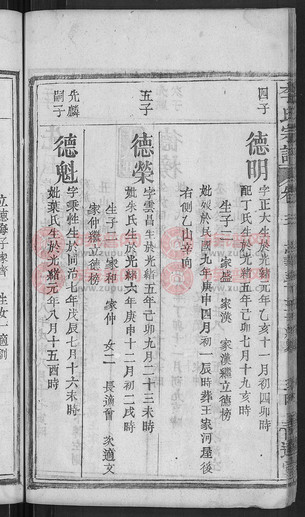 四子
德明
字正大生於光緒元年乙亥十一月初四卯時
配丁氏生於光緒五年己卯七月十九亥時
生子二 家盛 家漢 家漢繼立德榜
妣歿於民國九年庚申四月初一辰時葬王家河屋後
右側乙山辛向
五子
德榮
字雲昌生於光緒五年己卯九月二十三未時
妣朱氏生於光緒六年庚申十二月初二戌時
生子二 家和 家仲 女二 長適曾 次適文
家仲繼立德榜
先麟
嗣子
德魁
字秉性生於同治七年戊辰七月十六未時
妣葉氏生於光緒元年八月十五酉時